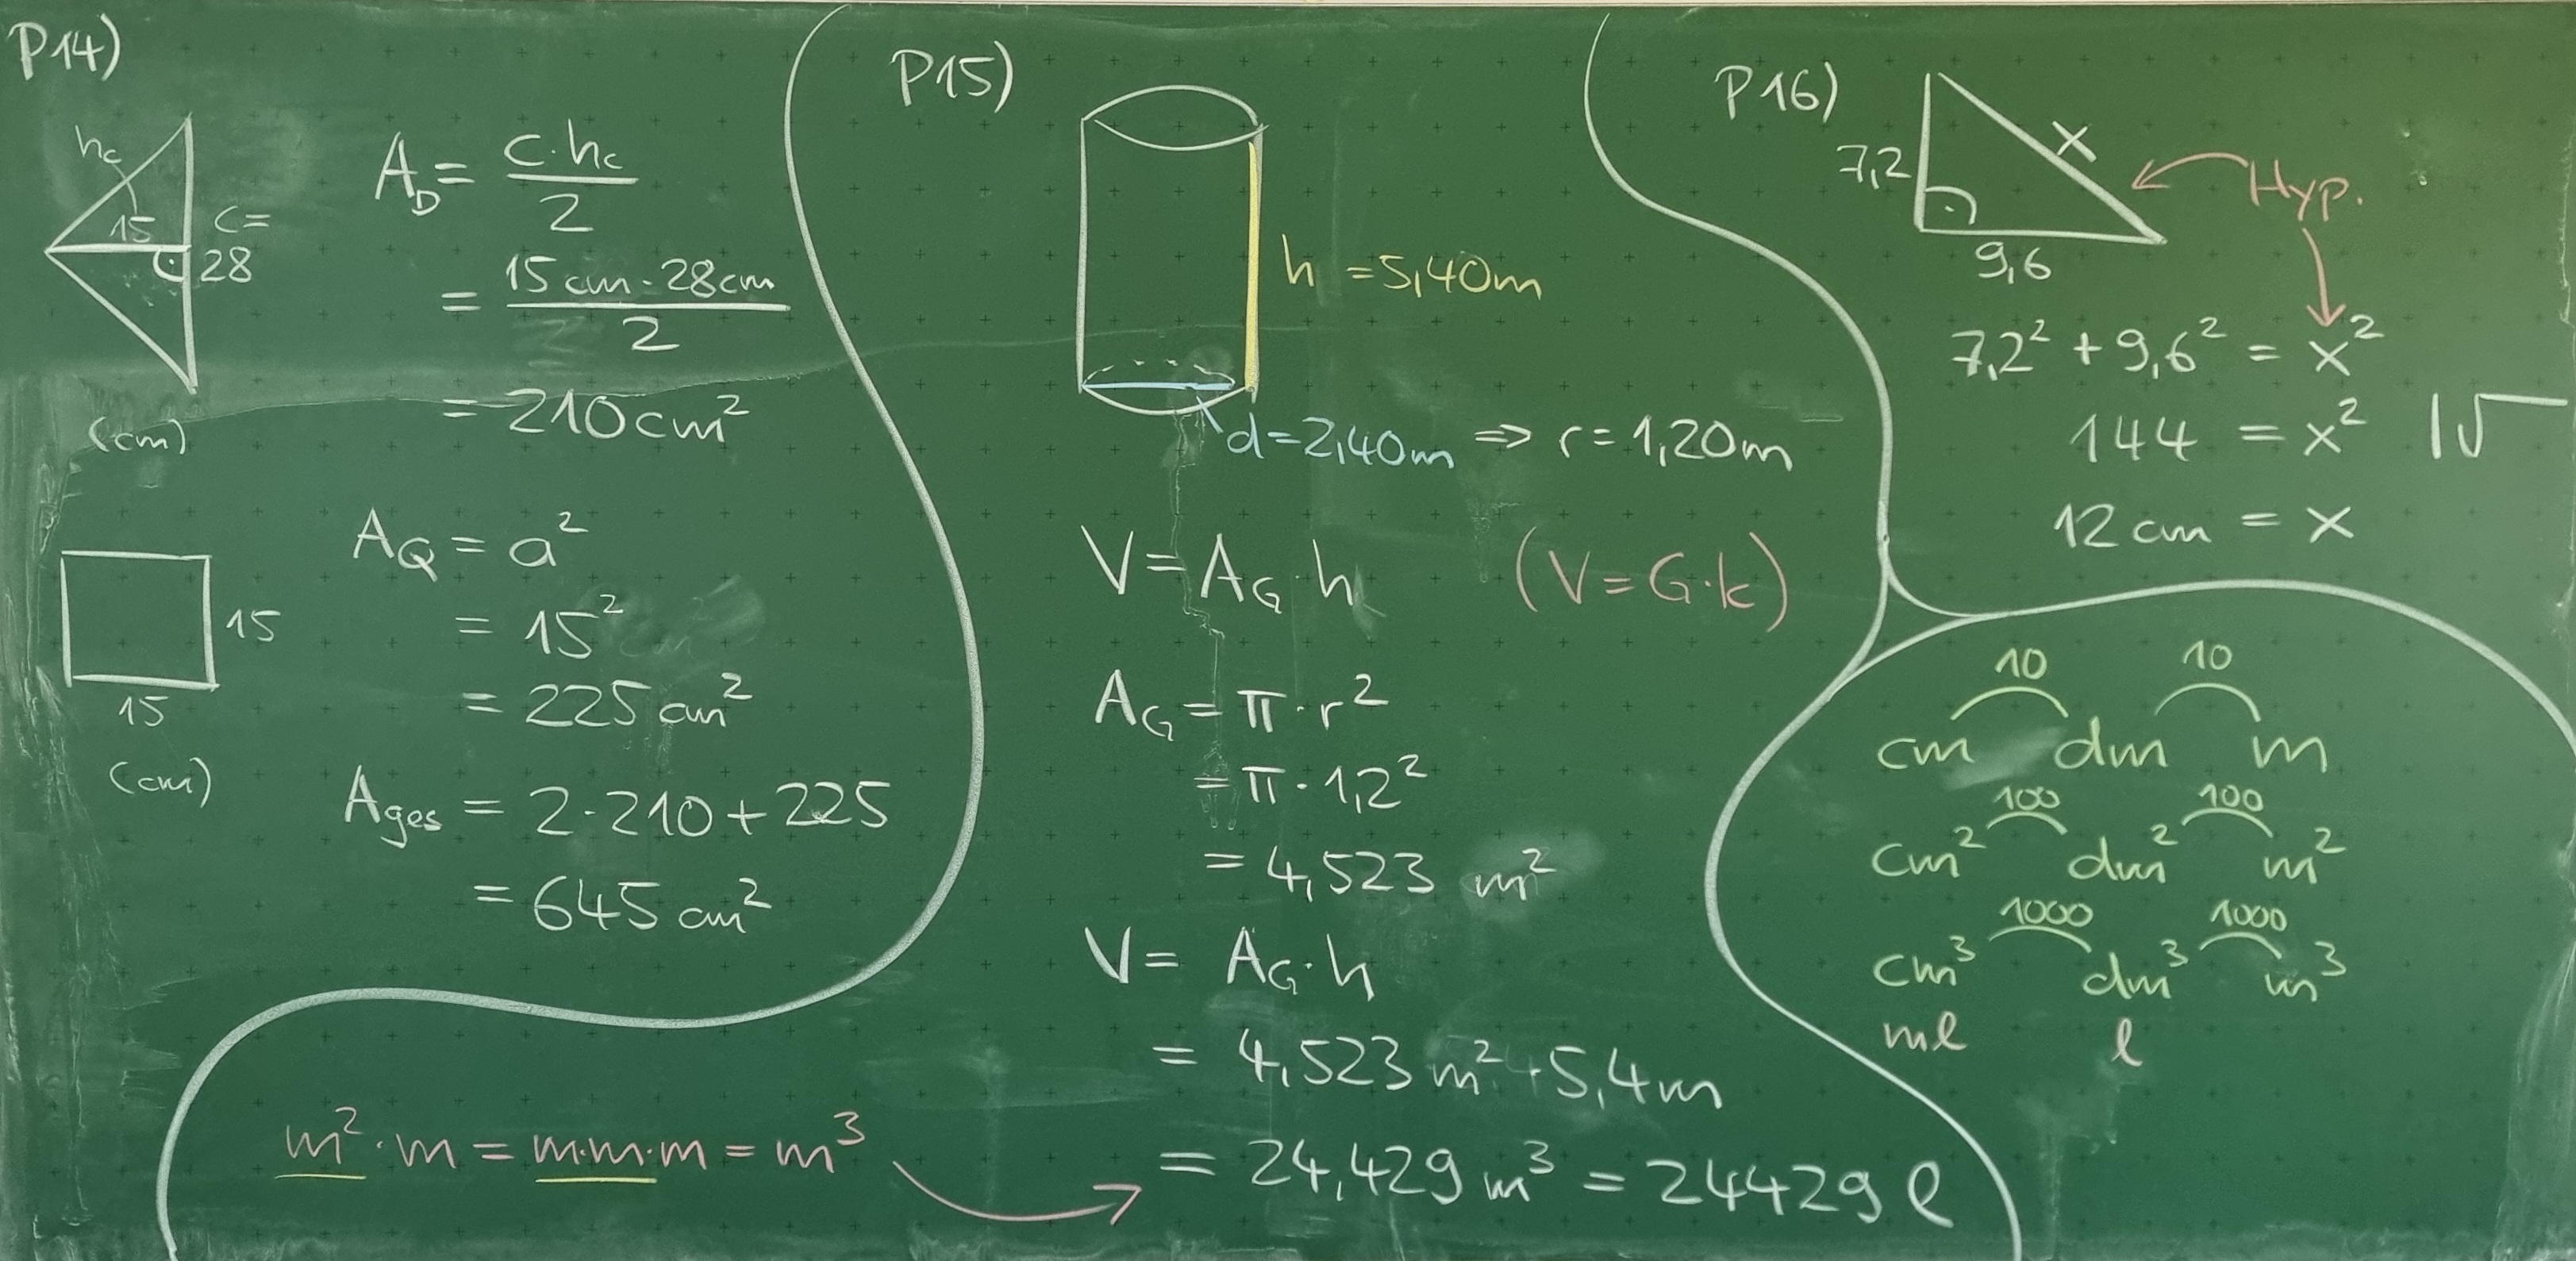 P14)
hc
15
C=
28
(cm)
A_D = c·hc / 2
= 15cm·28cm / 2
= 210cm²
15
15
(cm)
A_Q = a²
= 15²
= 225cm²
Ages = 2·210+225
= 645cm²
m²·m = m·m·m = m³
P15)
h =5,40m
d=2,40m => r=1,20m
V=A_G·h (V=G·k)
A_G = π·r²
= π·1,2²
= 4,523 m²
V= A_G·h
= 4,523m²·5,4m
= 24,429m³ = 24429 l
P16)
7,2
x
9,6
Hyp.
7,2² + 9,6² = x²
144 = x² |√
12cm = x
10 10
cm dm m
100 100
cm² dm² m²
1000 1000
cm³ dm³ m³
ml l